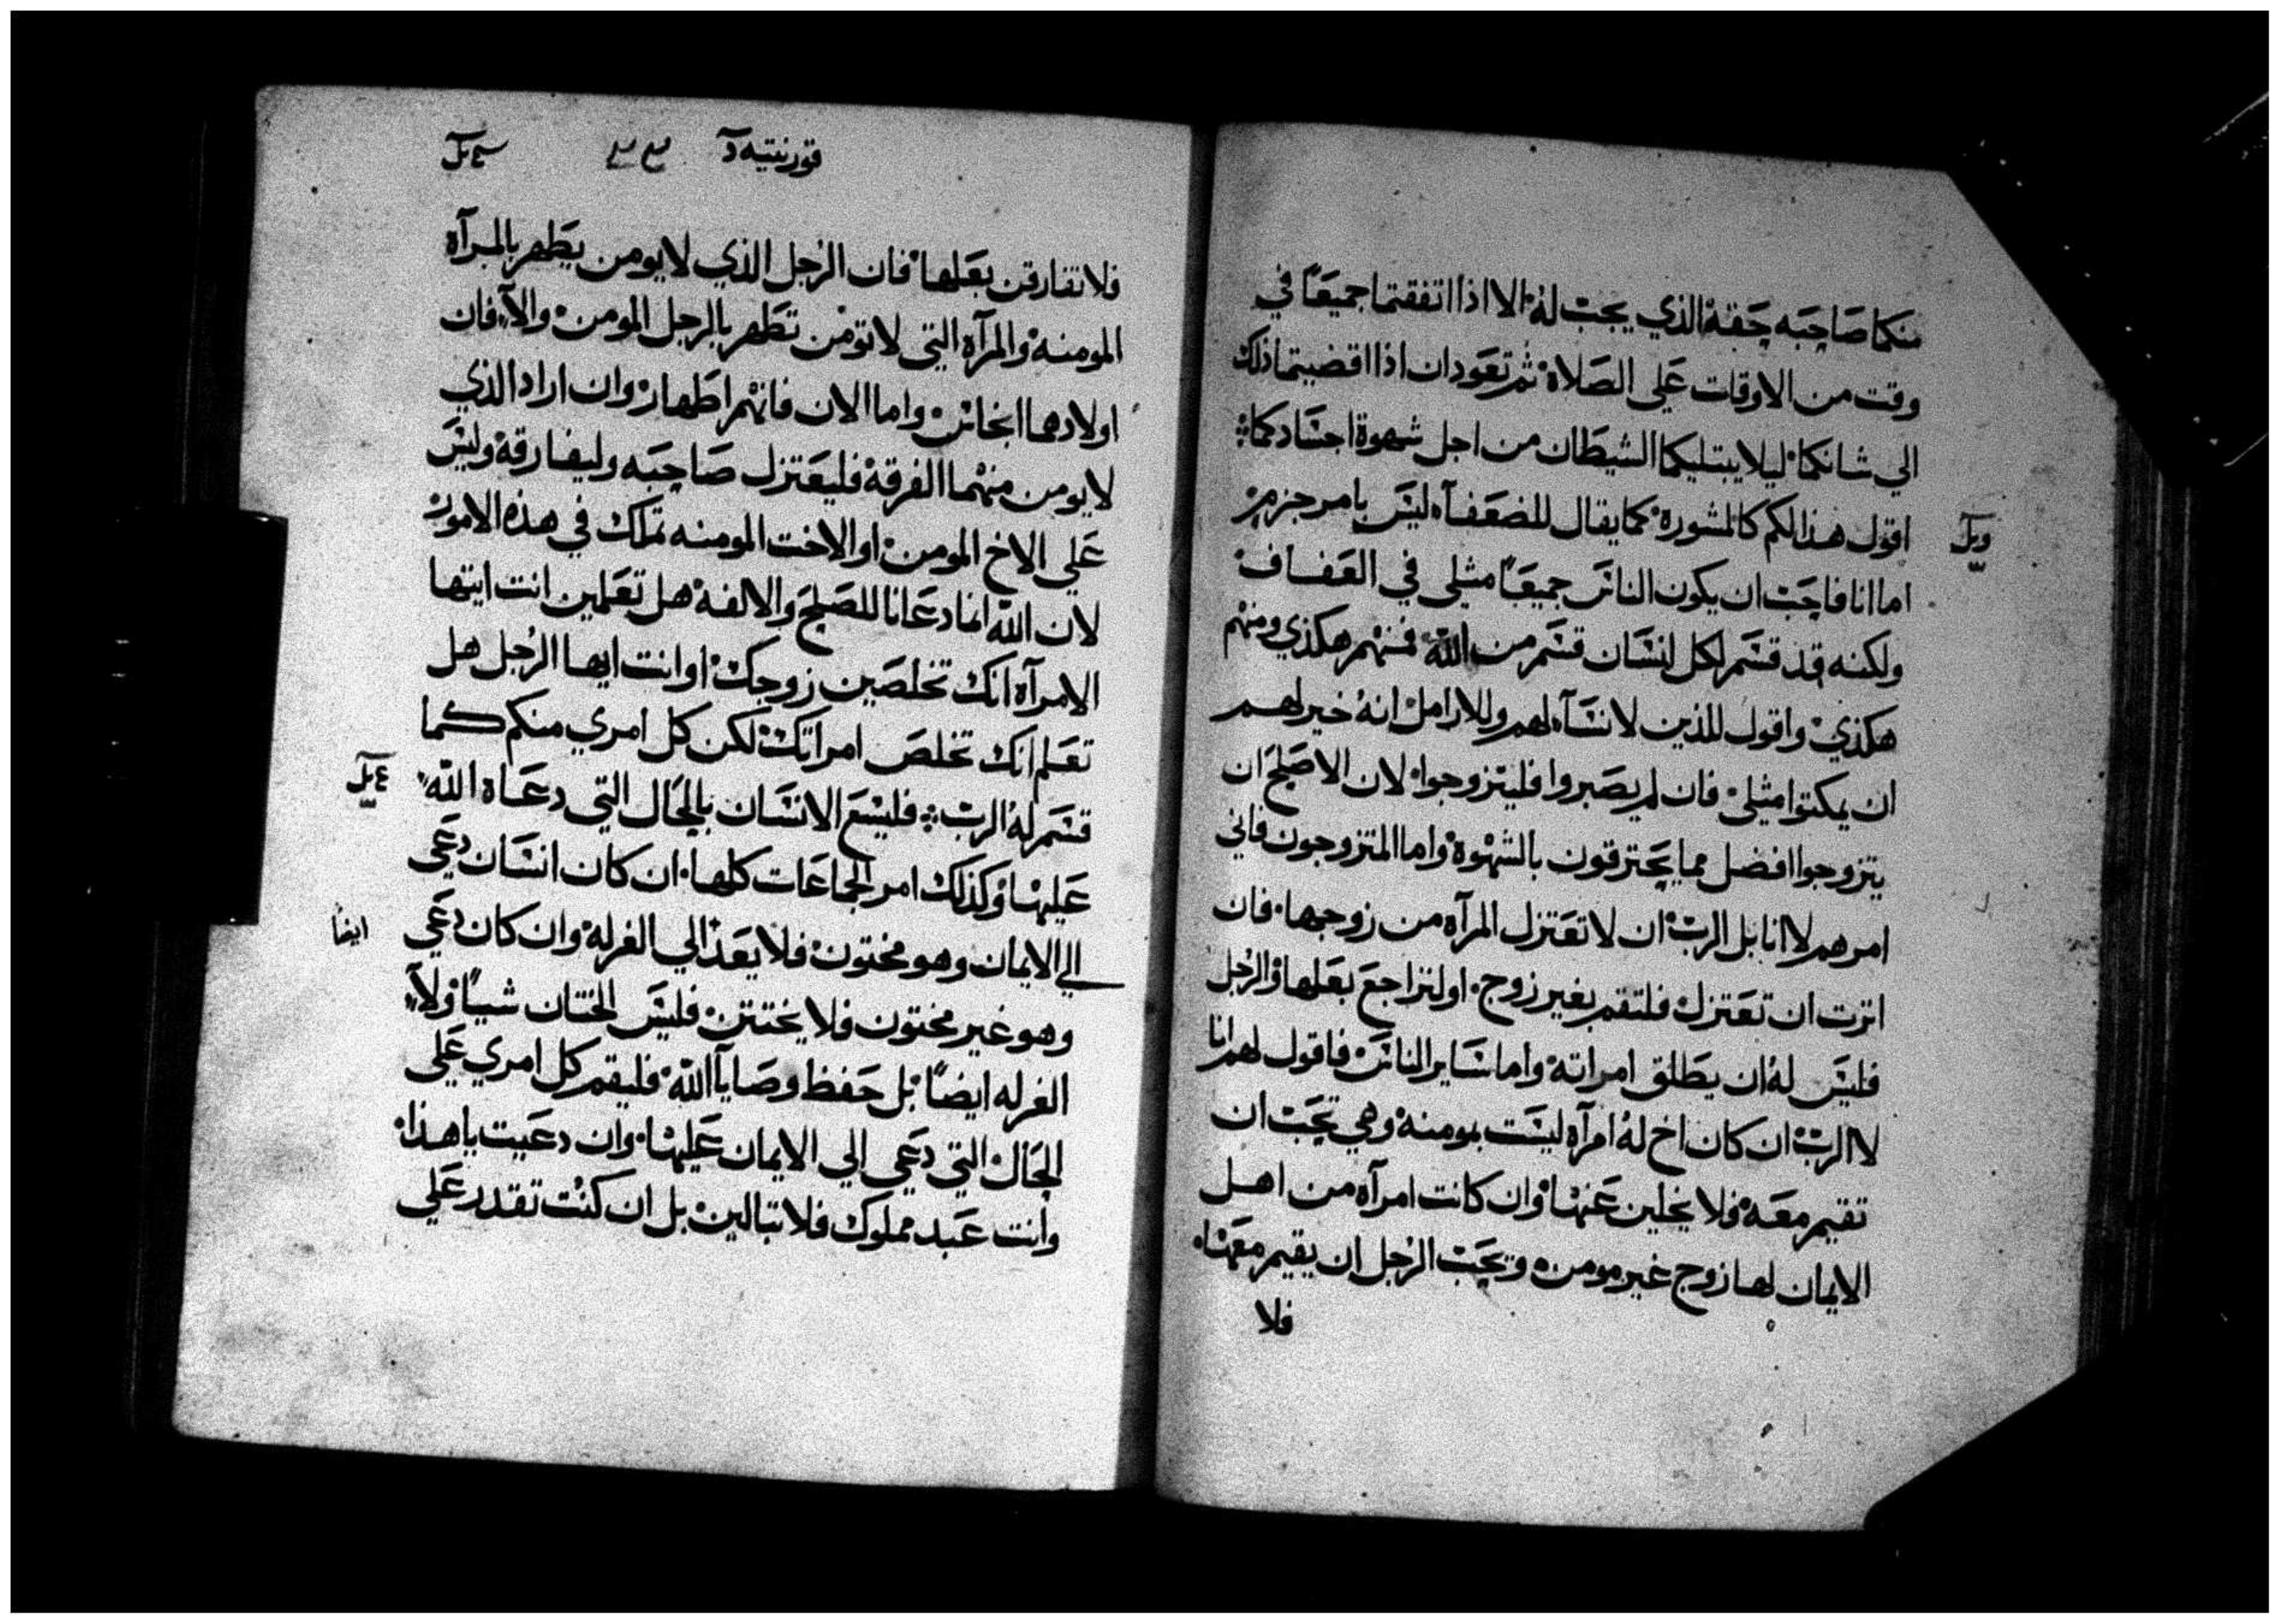 منكما صاحبه حقه الذي يجب له الا اذا اتفقتما جميعًا في
وقت من الاوقات علي الصلاة ثم تعودان اذا اقضيتما ذلك
الي شانكما ليلا يبتليكما الشيطان من اجل شهوة اجسادكما
اقول هذا لكم كالمشورة كما يقال للضعفآ ليس بامر جزم
اما انا فاحب ان يكون الناس جميعًا مثلي في العفاف
ولكنه قد قسم لكل انسان قسم من الله فمنهم هكذي ومنهم
هكذي واقول للذين لا نسآ لهم وللارامل انه خير لهم
ان يمكتوا مثلي فان لم يصبروا فليتزوجوا لان الاصلح ان
يتزوجوا افضل مما يحترقون بالشهوة واما المتزوجون فاني
امرهم لا انا بل الرب ان لا تعتزل المرآه من زوجها فان
اترت ان تعتزل فلتقم بغير زوج او لتراجع بعلها والرجل
فليس له ان يطلق امراته واما ساير الناس فاقول لهم انا
لا الرب ان كان اخ له امرآه ليست بمومنه وهي تحب ان
تقيم معه فلا يخلين عنها وان كانت امرآه من اهل
الايمان لها زوج غير مومن وتحب الرجل ان يقيم معها
فلا
قورنتيه
فلا تفارقن بعلها فان الرجل الذي لا يومن يطهر بالمرآه
المومنه والمرآه التي لا تومن تطهر بالرجل المومن والا فان
اولادهما انجاس واما الان فانهم اطهار وان اراد الذي
لا يومن منهما الفرقه فليعتزل صاحبه وليفارقه وليس
علي الاخ المومن او الاخت المومنه تملك في هذه الامور
لان الله انما دعانا للصلح والالفه هل تعلمين انت ايتها
الامرآه انك تخلصين زوجك او انت ايها الرجل هل
تعلم انك تخلص امراتك لكن كل امري منكم كما
قسم له الرب فليسع الانسان بالحال التي دعاه الله
عليها وكذلك امر الجماعات كلها ان كان انسان دعي
الي الايمان وهو مختون فلا يعد الي الغرله وان كان دعي
ايضا
وهو غير مختون فلا يختتن فليس الختان شيًا ولا
الغرله ايضًا بل حفظ وصايا الله فليقم كل امري علي
الحال التي دعي الي الايمان عليها وان دعيت يا هذا
وانت عبد مملوك فلا تبالين بل ان كنت تقدر علي